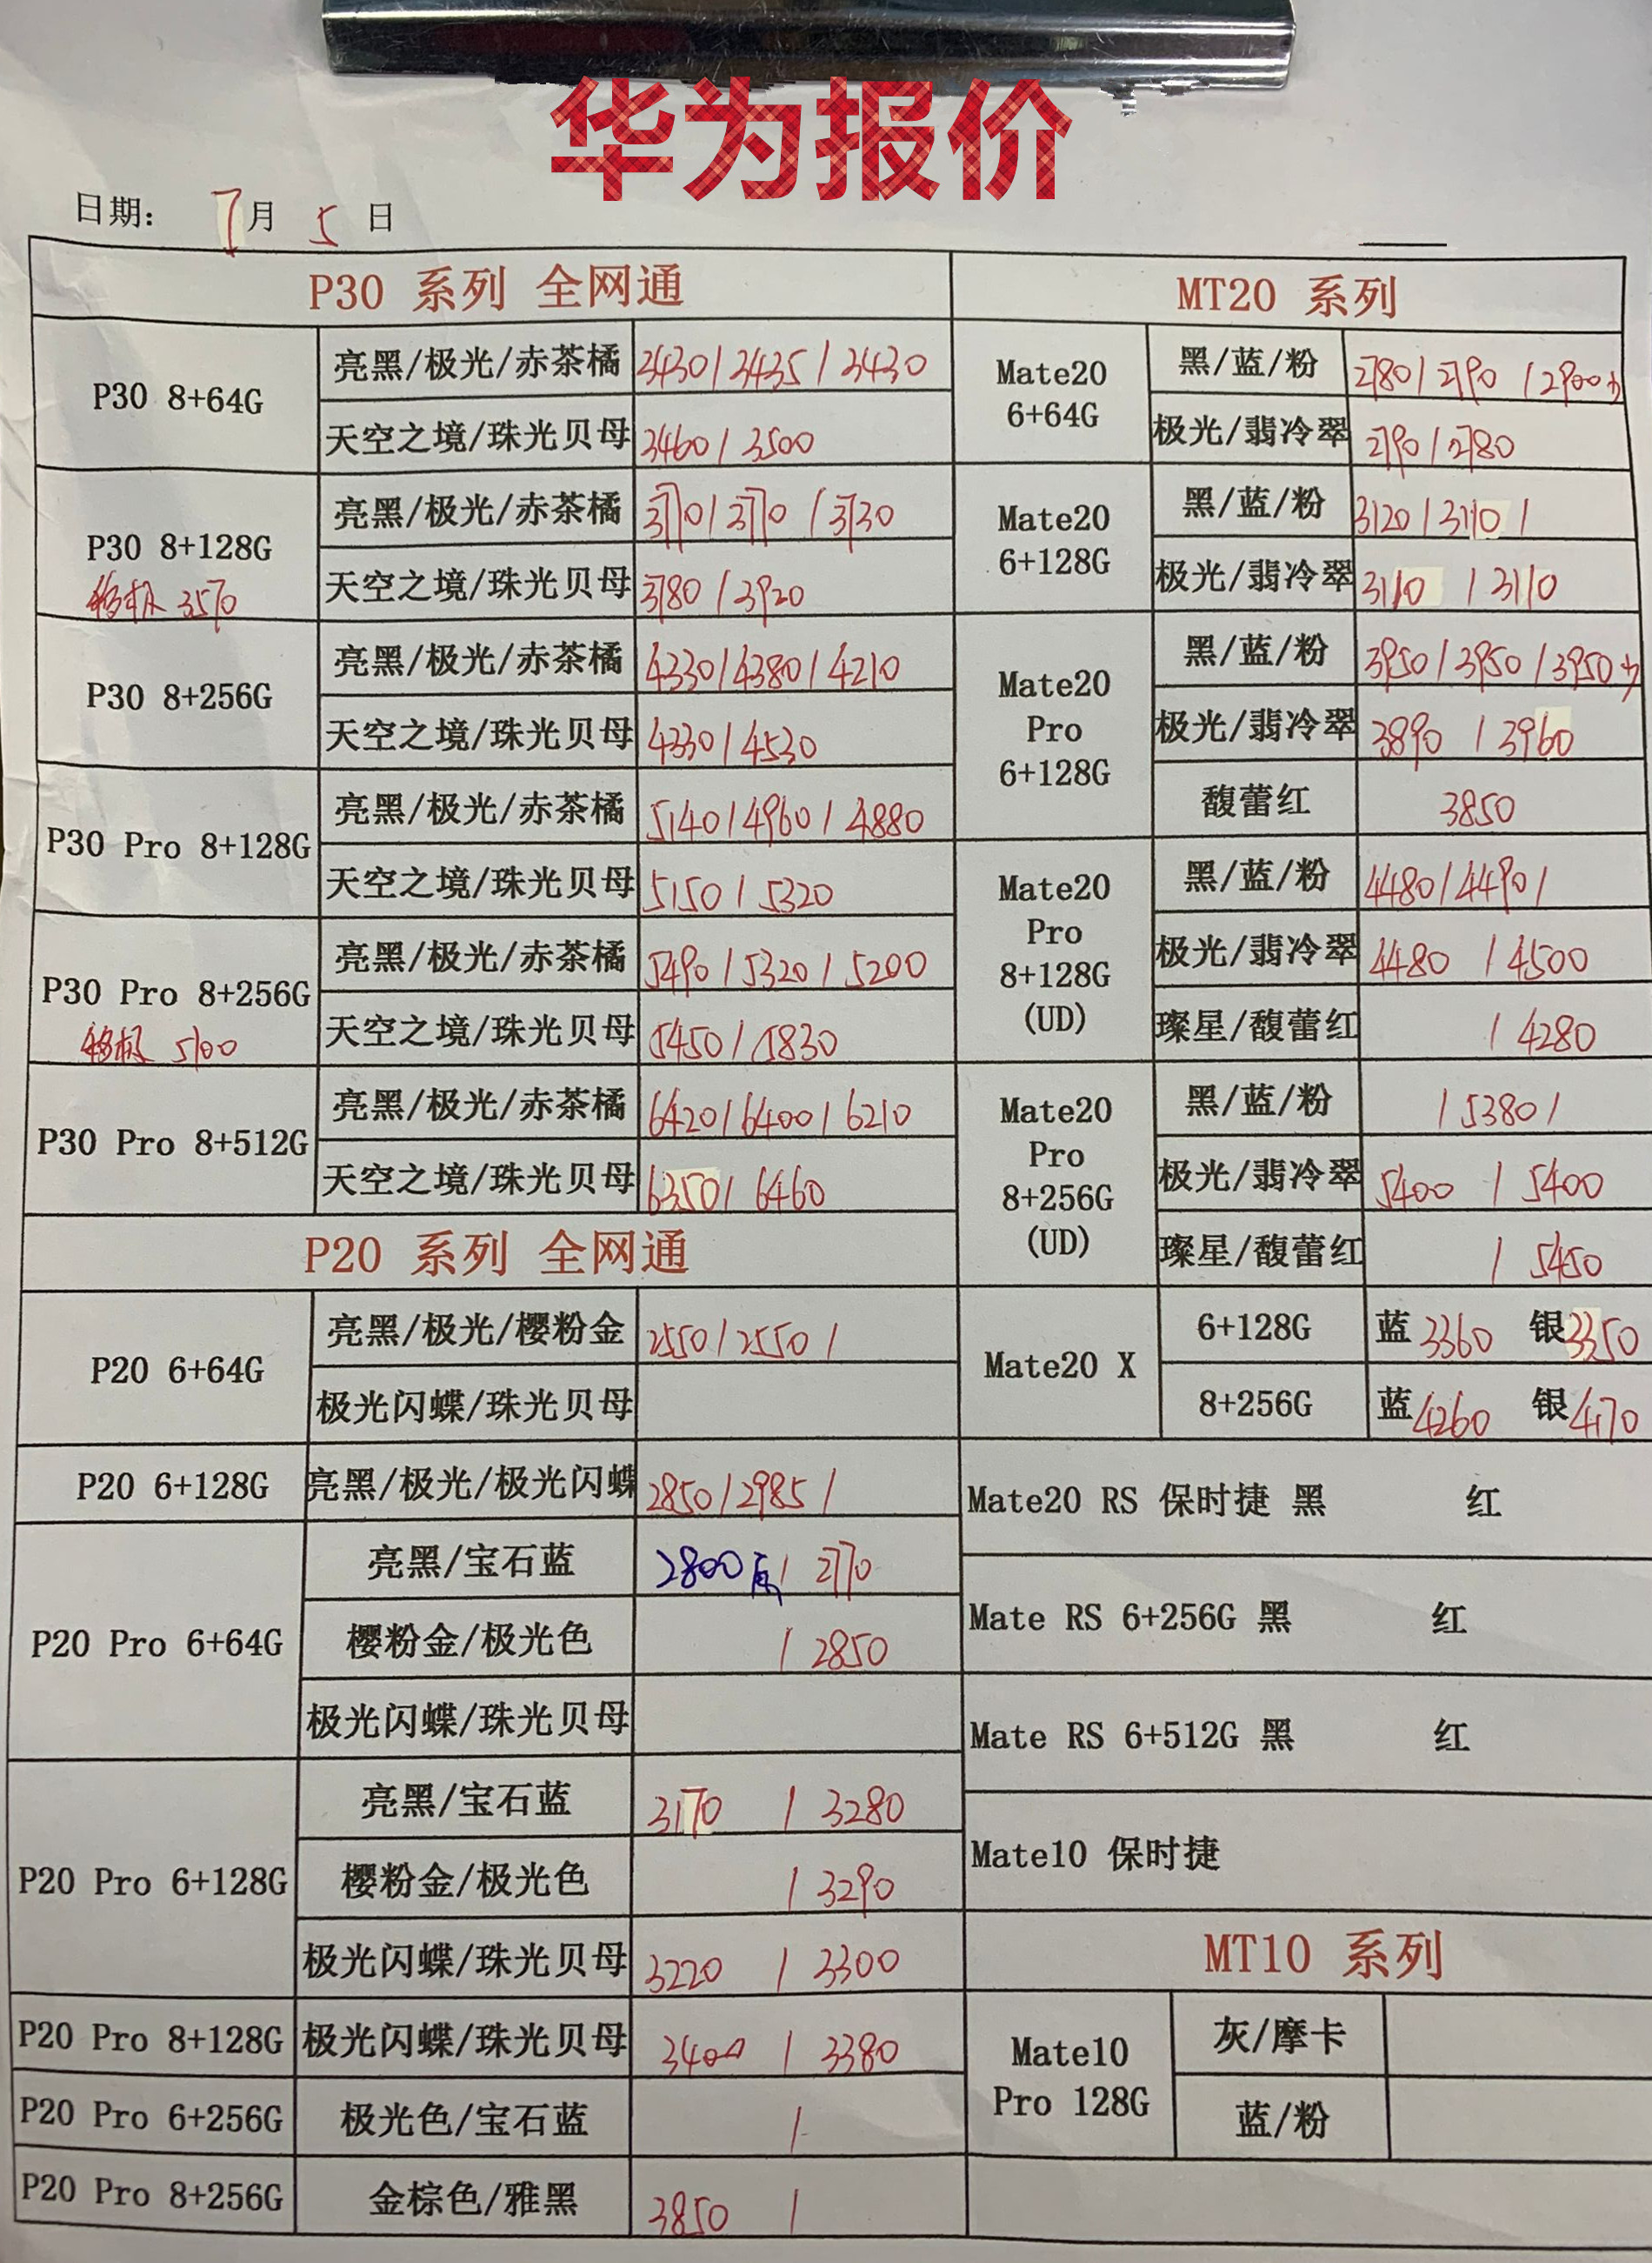 华为报价
日期: 7月 5 日
P30 系列 全网通
P30 8+64G
亮黑/极光/赤茶橘 3430/3435/3430
天空之境/珠光贝母 3460/3500
P30 8+128G
移机 3570
亮黑/极光/赤茶橘 3710/3710/3730
天空之境/珠光贝母 3780/3920
P30 8+256G
亮黑/极光/赤茶橘 4330/4380/4210
天空之境/珠光贝母 4330/4530
P30 Pro 8+128G
亮黑/极光/赤茶橘 5140/4960/4880
天空之境/珠光贝母 5150/5320
P30 Pro 8+256G
移机 5100
亮黑/极光/赤茶橘 5490/5320/5200
天空之境/珠光贝母 5450/5830
P30 Pro 8+512G
亮黑/极光/赤茶橘 6420/6400/6210
天空之境/珠光贝母 6350/6460
P20 系列 全网通
P20 6+64G
亮黑/极光/樱粉金 2550/2550/
极光闪蝶/珠光贝母
P20 6+128G
亮黑/极光/极光闪蝶 2850/2985/
P20 Pro 6+64G
亮黑/宝石蓝 2800 / 2770
樱粉金/极光色 / 2850
极光闪蝶/珠光贝母
P20 Pro 6+128G
亮黑/宝石蓝 3170 / 3280
樱粉金/极光色 / 3290
极光闪蝶/珠光贝母 3220 / 3300
P20 Pro 8+128G
极光闪蝶/珠光贝母 3400 / 3380
P20 Pro 6+256G
极光色/宝石蓝 /
P20 Pro 8+256G
金棕色/雅黑 3850 /
MT20 系列
Mate20
6+64G
黑/蓝/粉 2780/2790/2900
极光/翡冷翠 2790/2780
Mate20
6+128G
黑/蓝/粉 3120/3110/
极光/翡冷翠 3110 / 3110
Mate20
Pro
6+128G
黑/蓝/粉 3950/3950/3950
极光/翡冷翠 3890 / 3960
馥蕾红 3850
Mate20
Pro
8+128G
(UD)
黑/蓝/粉 4480/4490/
极光/翡冷翠 4480 / 4500
璨星/馥蕾红 / 4280
Mate20
Pro
8+256G
(UD)
黑/蓝/粉 / 5380 /
极光/翡冷翠 5400 / 5400
璨星/馥蕾红 / 5450
Mate20 X
6+128G 蓝 3360 银 3350
8+256G 蓝 4260 银 4170
Mate20 RS 保时捷 黑 红
Mate RS 6+256G 黑 红
Mate RS 6+512G 黑 红
Mate10 保时捷
MT10 系列
Mate10
Pro 128G
灰/摩卡
蓝/粉